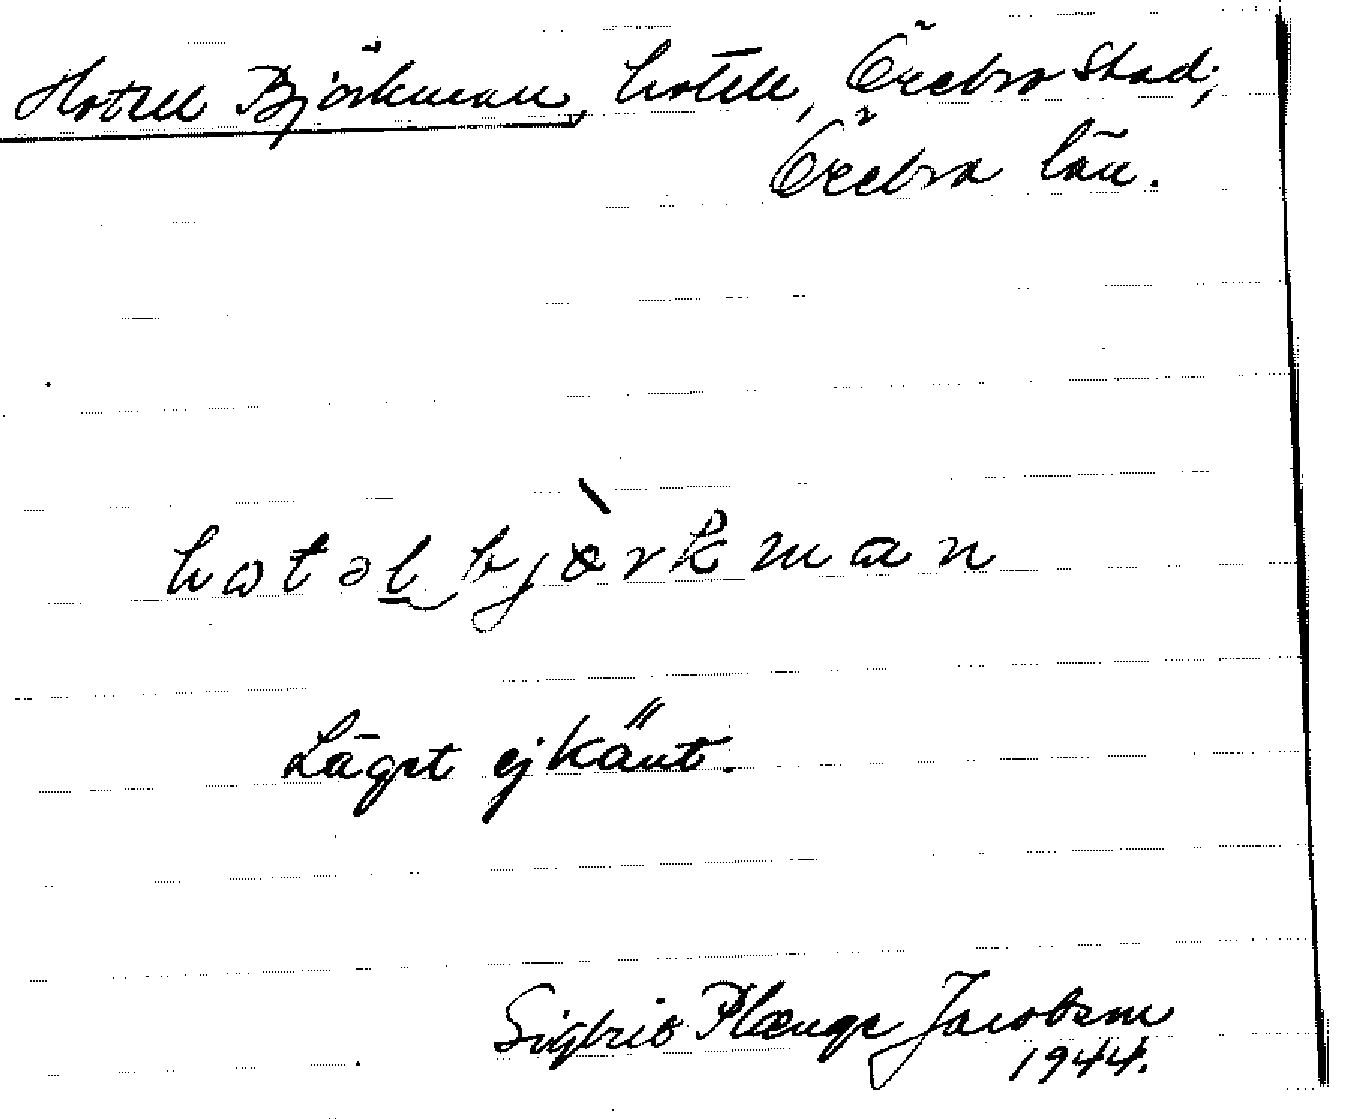 Hotell Björkman, hotell, Örebro stad,
Örebro län.
hotəl bjàrkman
Läget ej känt.
Sigfrid Plænge Jacobson
1944.